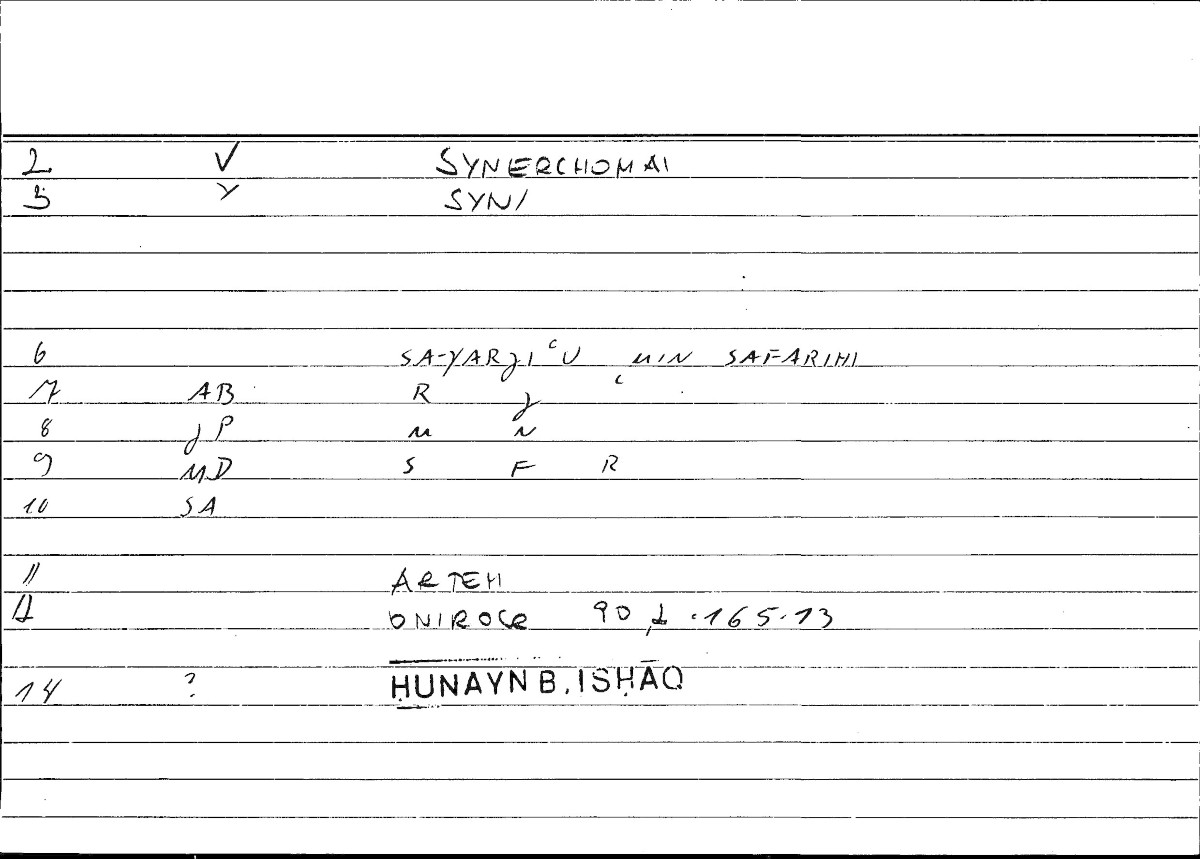 2 V SYNERCHOMAI
3 Y SYN/
6 SA-YARJIʿU MIN SAFARIHI
7 AB R J ʿ
8 JP M N
9 MD S F R
10 SA
11 ARTEM
ONIROCR 90,1 · 165.13
14 ? ḤUNAYN B. ISḤĀQ